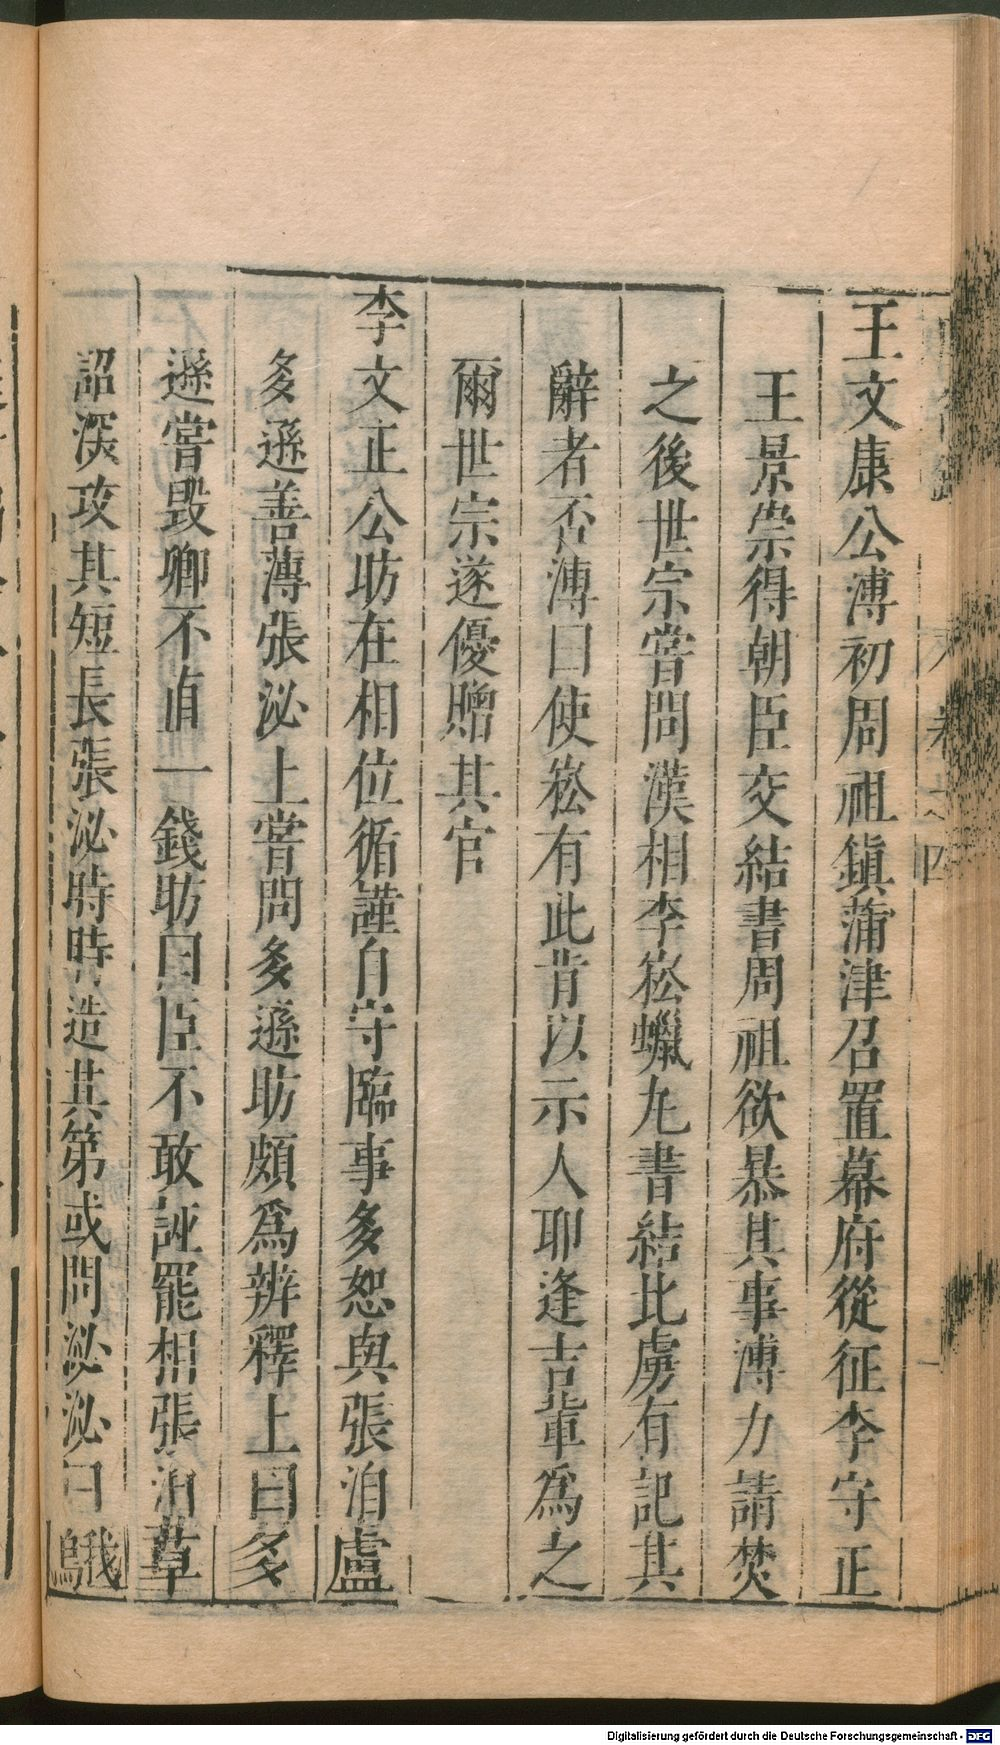 王文康公溥初周祖鎮蒲津召置幕府從征李守正
王景崇得朝臣交結書周祖欲暴其事溥力請焚
之後世宗嘗問漢相李崧蠟丸書結北虜有記其
辭者否溥曰使崧有此肯以示人耶逢吉輩為之
爾世宗遂優贈其官
李文正公昉在相位循謹自守臨事多恕與張洎盧
多遜善薄張泌上嘗問多遜昉頗為辨釋上曰多
遜嘗毀卿不直一錢昉曰臣不敢誣罷相張洎草
詔深攻其短長張泌時時造其第或問泌泌曰我
卷之四
Digitalisierung gefördert durch die Deutsche Forschungsgemeinschaft - DFG